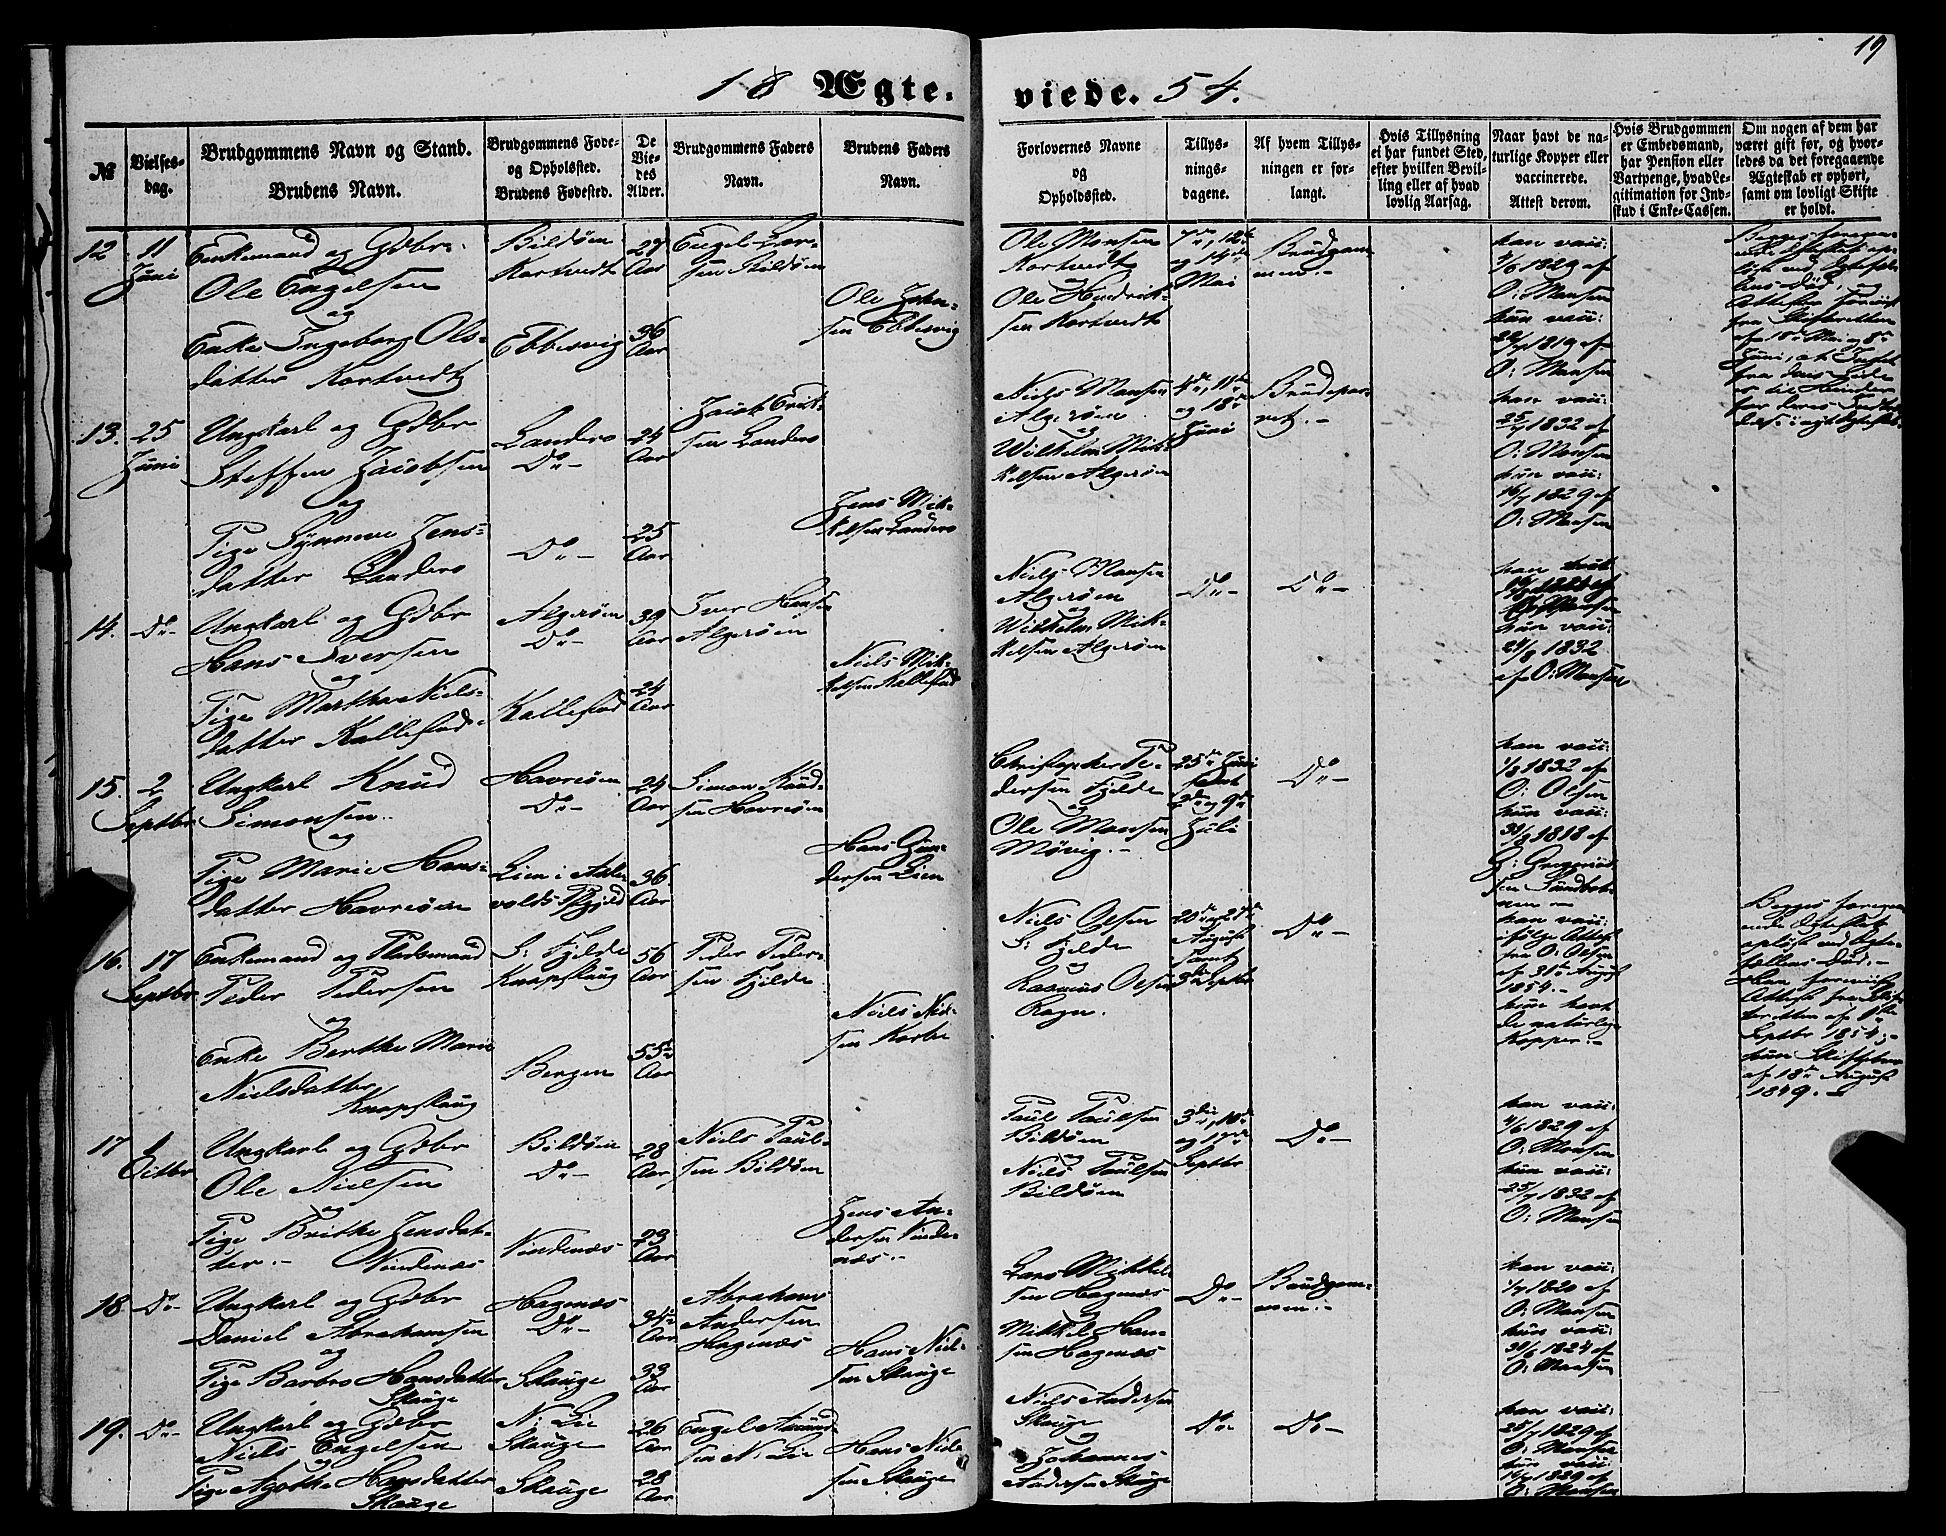 19
18 Ægteviede. 54.
№
Vielses-
dag.
Brudgommens Navn og Stand.
Brudens Navn.
Brudgommens Føde-
og Opholdsted.
Brudens Fødested.
De
Vie-
des
Alder.
Brudgommens Faders
Navn.
Brudens Faders
Navn.
Forlovernes Navne
og
Opholdssted.
Tillys-
nings-
dagene.
Af hvem Tillys-
ningen er for-
langt.
Hvis Tillysning
ei har fundet Sted,
efter hvilken Bevil-
ling eller af hvad
lovlig Aarsag.
Naar havt de na-
turlige Kopper eller
vaccinerede.
Attest derom.
Hvis Brudgommen
er Embedsmand,
har Pension eller
Vartpenge, hvad Le-
gitimation for Ind-
skud i Enke-Cassen.
Om nogen af dem har
været gift før, og hvor-
ledes da det foregaaende
Ægteskab er ophørt,
samt om lovligt Skifte
er holdt.
12 11
Juni
Enkemand og Gdbr.
Ole Engelsen
og
Enke Ingeborg Ols-
datter Kortvedt
Bildøen
Kortvedt
Ebbesvig
27
Aar
36
Aar
Engel Lar-
sen Bildøen
Ole John-
sen Ebbesvig
Ole Monsen
Kortvedt
og
Ole Hendrik-
sen Kortvedt
7de, 12te
og 14de
Mai
Brudgom-
men.-
han vac:
4/6 1829 af
O: Monsen
hun vac:
1819 af
O: Monsen
13. 25
Juni
Ungkarl og Gdbr
Steffen Jacobsen
og
Pige Synneve Jens-
datter Landero
Landero
Do-
Do-
24
Aar
25
Aar
Jacob Erik-
sen Landero
Jens Mik-
kelsen Landero
Niels Monsen
Algerøen
og
Wilhelm Mik-
kelsen Algerøen
4de, 11te
og 18de
Juni
Brudepar-
ret.-
han vac:
25/7 1832 af
O: Monsen
hun vac:
16/7 1829 af
O: Monsen
14. Do-
Ungkarl og Gdbr
Hans Iversen
og
Pige Martha Niels-
datter Kallestad
Algerøen
Do-
Kallestad
39
Aar
24
Aar
Iver Hansen
Algerøen
Niels Mik-
kelsen Kallestad
Niels Monsen
Algerøen
og
Wilhelm Mik-
kelsen Algerøen
Do-
Do-
hun vac:
1832
af O: Monsen
15. 2
Septbr
Ungkarl Knud
Simonsen.
og
Pige Marie Hans-
datter Havreøen
Havreøen
Do-
Lien i Aale-
volds Pgjeld
24
Aar
36
Aar
Simon Knud-
sen Havreøen
Hans Gun-
dersen Lien
Christopher Pe-
dersen Fjelde
og
Ole Monsen
Møvig.-
25de Juni
samt
2den og 9de
Juli
Do-
han vac:
1832 af
O: Olsen
hun vac:
1818 af
16. 17
Septbr
Enkemand og Pladsmand
Peder Pedersen
og
Enke Berthe Marie
Nielsdatter
Knapskaug
S: Fjelde
Knapskaug
Bergen
56
Aar
55
Aar
Peder Peder-
sen Fjelde
Niels Niel-
sen
Niels Olsen
S: Fjelde
og
Rasmus Olsen
20de og 27de
August
samt
3die Septbr
Do-
han vac:
ifølge Attest
fra O: Olsen
af 31te August
1854.-
hun havt
de naturlige
Kopper.-
Begges foregaa-
ende Ægteskab
opløst ved Ægte-
fællens Død.-
Septbr 1854;
af 18de August
1849.-
17 1
Octbr
Ungkarl og Gdbr
Ole Nielsen
og
Pige Brithe Jensdat-
ter.- Vindenæs
Bildøen
Do-
Vindenæs
28
Aar
23
Aar
Niels Poul-
sen Bildøen
Jens An-
dersen Vinde-
næs.-
Poul Poulsen
Bildøen
og
Niels Poulsen
Bildøen
3die, 10de
og 17de
Septbr
Do-
han vac:
4/6 1829 af
O: Monsen
hun vac:
25/7 1832 af
O: Monsen
18 Do-
Ungkarl og Gdbr
Daniel Abrahamsen
og
Pige Barbro Hansdatter
Skauge
Hagenæs
Do-
Skauge
34
Aar
33
Aar
Abraham
Andersen
Hagenæs
Hans Niel-
sen Skauge
Lars Mikkel-
sen Hagenæs
og
Mikkel Han-
sen Hagenæs
Do-
Brudgom-
men.-
han vac:
1/7 1820 af
O: Monsen
hun vac:
1824 af
O: Monsen
19. Do-
Ungkarl og Gdbr
Niels Engelsen
og
Pige Agathe Hansdatter
Skauge
N: Lie
Skauge
Skauge
26
Aar
28
Aar
Engel Amund-
sen N: Lie
Hans Niel-
sen Skauge
Niels Andersen
Skauge
og
Johannes
Andersen Skauge
Do-
Do-
han vac:
25/7 1829 af
O: Monsen
hun vac:
1829 af
O: Monsen